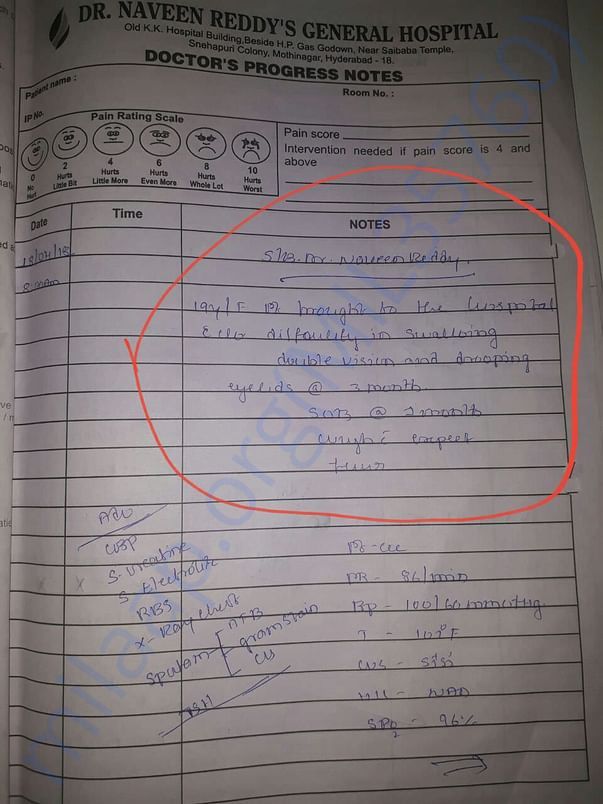 DR. NAVEEN REDDY'S GENERAL HOSPITAL
Old K.K. Hospital Building,Beside H.P. Gas Godown, Near Saibaba Temple,
Snehapuri Colony, Mothinagar, Hyderabad - 18.
DOCTOR'S PROGRESS NOTES
Patient name :
Room No. :
IP No.
Pain Rating Scale
0 2 4 6 8 10
No Hurt
Hurts Little Bit
Hurts Little More
Hurts Even More
Hurts Whole Lot
Hurts Worst
Pain score
Intervention needed if pain score is 4 and
above
Date Time NOTES
S/B. Dr. Naveen Reddy.
19y/F Pt brought to the hospital
c/o difficulty in swallowing
double vision and drooping
eyelids @ 3 month.
SOB @ 2 month
cough c
Adv
CBP
S. Electrolite
RBS
X-Ray chest
Sputum AFB
gramstain
PR - 86/min
Bp - 100/60 mmHg.
T - 101°F
CVS - S1S2
NAD
SPO2 - 96%
milaap.org